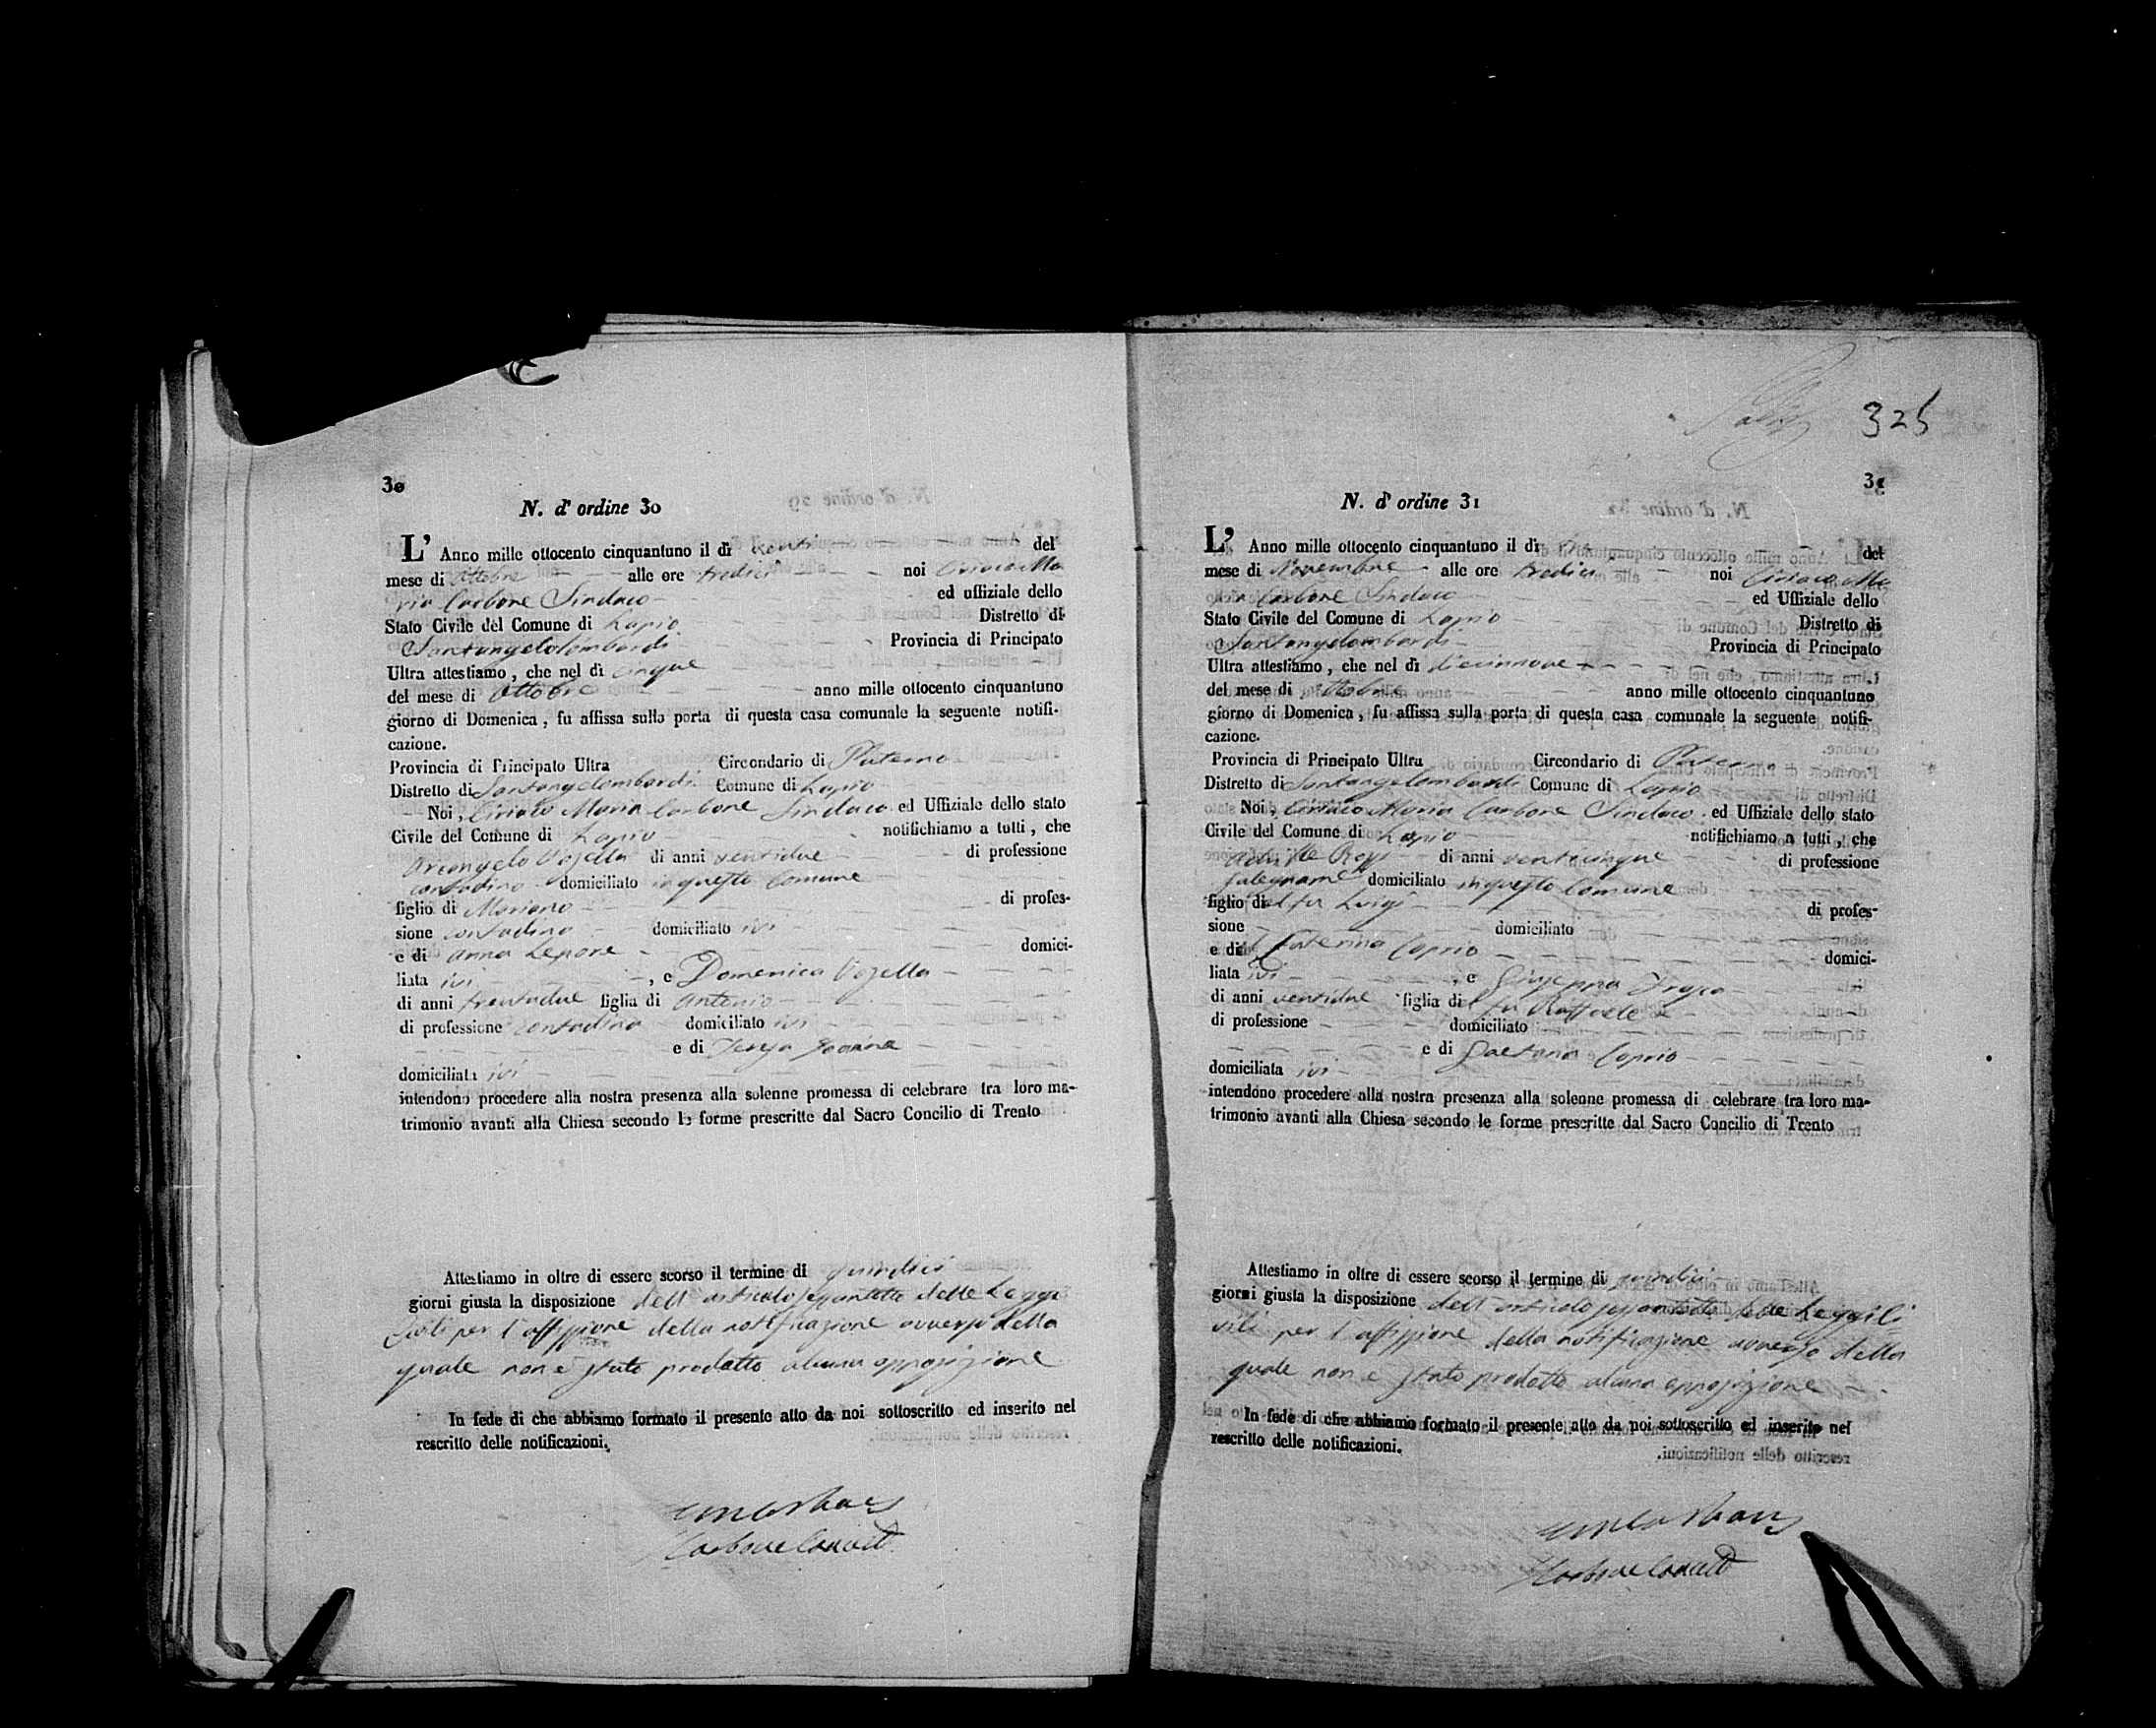 30
N. d' ordine 30
L' Anno mille ottocento cinquantuno il dì venti del
mese di Ottobre alle ore tredici noi Ciriaco Ma
ria Carbone Sindaco ed uffiziale dello
Stato Civile del Comune di Lapio Distretto di
Santangelolombardi Provincia di Principato
Ultra attestiamo, che nel dì cinque
del mese di Ottobre anno mille ottocento cinquantuno
giorno di Domenica, fu affissa sulla porta di questa casa comunale la seguente notifi-
cazione.
Provincia di Principato Ultra Circondario di Paterno
Distretto di Santangelolombardi Comune di Lapio
Noi, Ciriaco Maria Carbone Sindaco ed Uffiziale dello stato
Civile del Comune di Lapio notifichiamo a tutti, che
Arcangelo Vozella di anni ventidue di professione
contadino domiciliato in questo Comune
figlio di Mariano di profes-
sione contadino domiciliato ivi
e di Anna Lepore domici-
liata ivi, e Domenica Vozella
di anni trentadue figlia di Antonio
di professione contadino domiciliato ivi
e di
domiciliata ivi
intendono procedere alla nostra presenza alla solenne promessa di celebrare tra loro ma-
trimonio avanti alla Chiesa secondo le forme prescritte dal Sacro Concilio di Trento
Attestiamo in oltre di essere scorso il termine di quindici
giorni giusta la disposizione dell articolo sessantotto delle Leggi
Civili per l'affissione della notificazione avverso della
quale non è stato prodotto alcuna opposizione
In fede di che abbiamo formato il presente atto da noi sottoscritto ed inserito nel
rescritto delle notificazioni.
325
31
N. d' ordine 31
L' Anno mille ottocento cinquantuno il dì del
mese di Novembre alle ore tredici noi Ciriaco Ma
ria Carbone Sindaco ed Uffiziale dello
Stato Civile del Comune di Lapio Distretto di
Santangelolombardi Provincia di Principato
Ultra attestiamo, che nel dì diecinnove
del mese di Ottobre anno mille ottocento cinquantuno
giorno di Domenica, fu affissa sulla porta di questa casa comunale la seguente notifi-
cazione.
Provincia di Principato Ultra Circondario di Paterno
Distretto di Santangelolombardi Comune di Lapio
Noi, Ciriaco Maria Carbone Sindaco ed Uffiziale dello stato
Civile del Comune di Lapio notifichiamo a tutti, che
Achille di anni venticinque di professione
falegname domiciliato in questo Comune
figlio del fu Luigi di profes-
sione domiciliato
e di Caterina Caprio domici-
liata ivi, e Giuseppa
di anni ventidue figlia del fu Raffaele
di professione domiciliato
e di Gaetana Caprio
domiciliata ivi
intendono procedere alla nostra presenza alla solenne promessa di celebrare tra loro ma-
trimonio avanti alla Chiesa secondo le forme prescritte dal Sacro Concilio di Trento
Attestiamo in oltre di essere scorso il termine di quindici
giorni giusta la disposizione dell articolo sessantotto delle Leggi Ci
vili per l'affissione della notificazione avverso della
quale non è stato prodotto alcuna opposizione
In fede di che abbiamo formato il presente atto da noi sottoscritto ed inserito nel
rescritto delle notificazioni.